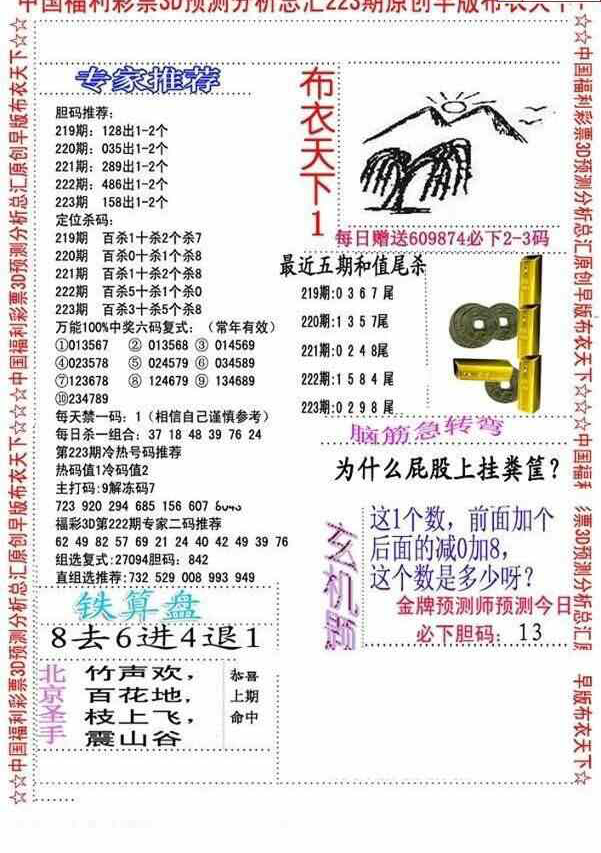 中国福利彩票3D预测分析总汇223期原创早版布衣天下
专家推荐
胆码推荐:
219期: 128出1-2个
220期: 035出1-2个
221期: 289出1-2个
222期: 486出1-2个
223期 158出1-2个
定位杀码:
219期 百杀1十杀2个杀7
220期 百杀0十杀1个杀8
221期 百杀1十杀2个杀8
222期 百杀5十杀1个杀0
223期 百杀3十杀5个杀8
万能100%中奖六码复式: (常年有效)
①013567 ②013568 ③014569
④023578 ⑤024579 ⑥034589
⑦123678 ⑧124679 ⑨134689
⑩234789
每天禁一码: 1 (相信自己谨慎参考)
每日杀一组合: 37 18 48 39 76 24
第223期冷热号码推荐
热码值1冷码值2
主打码:9解冻码7
723 920 294 685 156 607
福彩3D第222期专家二码推荐
62 49 82 57 69 21 24 40 42 49 39 76
组选复式:27094胆码: 842
直组选推荐:732 529 008 993 949
铁算盘
8去6进4退1
北京圣手
竹声欢,
百花地,
枝上飞,
震山谷
恭喜
上期
命中
布衣天下1
每日赠送609874必下2-3码
最近五期和值尾杀
219期:0 3 6 7 尾
220期:1 3 5 7尾
221期:0 2 4 8尾
222期:1 5 8 4 尾
223期:0 2 9 8 尾
脑筋急转弯
为什么屁股上挂粪筐?
玄机题
这1个数, 前面加个
后面的减0加8,
这个数是多少呀?
金牌预测师预测今日
必下胆码: 13
☆☆中国福利彩票3D预测分析总汇原创早版布衣天下☆☆中国福利彩票3D预测分析总汇原创早版布衣天下☆☆
☆☆中国福利彩票3D预测分析总汇原创早版布衣天下☆☆中国福利
彩票3D预测分析总汇原
早版布衣天下☆